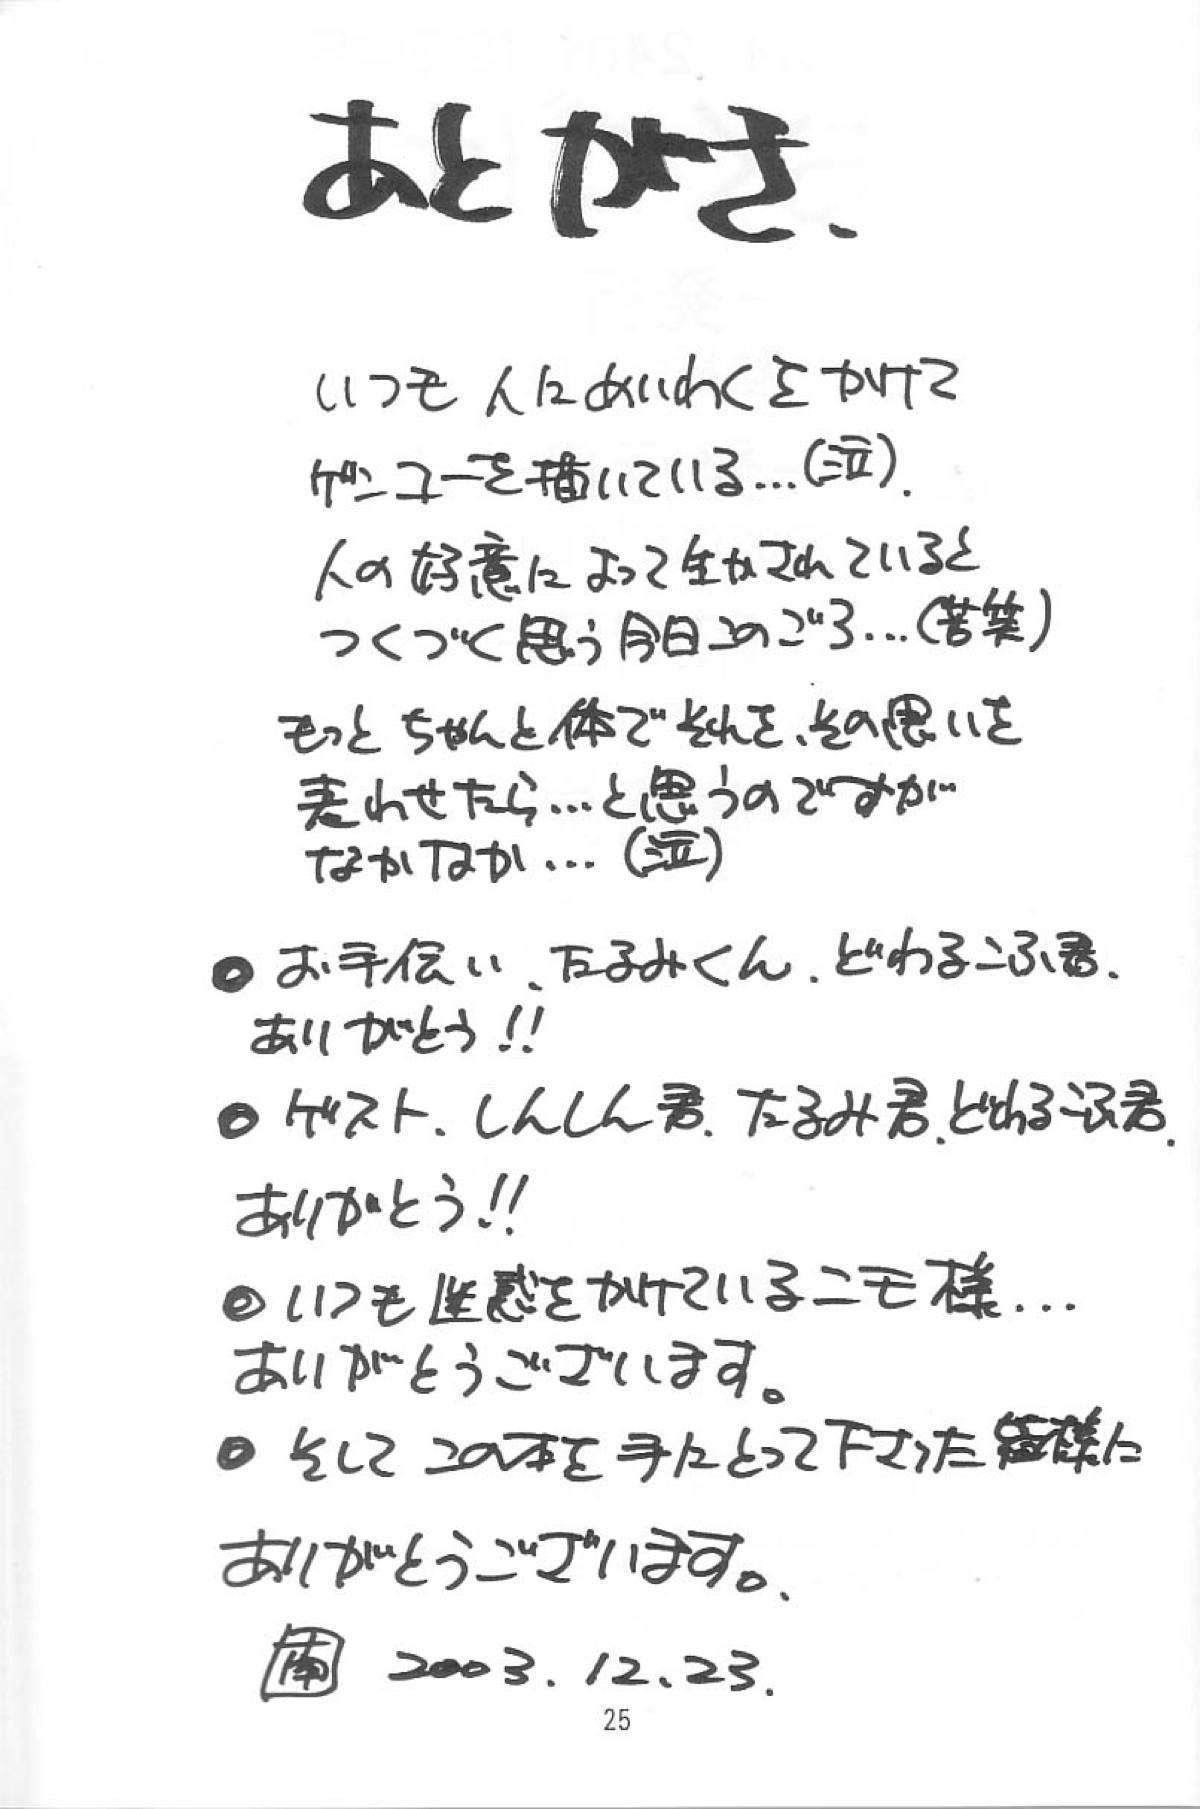 あとがき、
いつも人にめいわくをかけて
ゲンコーを描いている…(泣).
人の好意によって生かされていると
つくづく思う今日このごろ…(苦笑)
もっとちゃんと体でそれを、その思いを
表わせたら…と思うのですが
なかなか…(泣)
●お手伝い、たるみくん、どわるこふ君、
ありがとう!!
●ゲスト、しんしん君、たるみ君、どわるこふ君、
ありがとう!!
●いつも迷惑をかけているニモ様…
ありがとうございます。
●そしてこの本を手にとって下さった皆様に
ありがとうございます。、
南 2003.12.23.
25